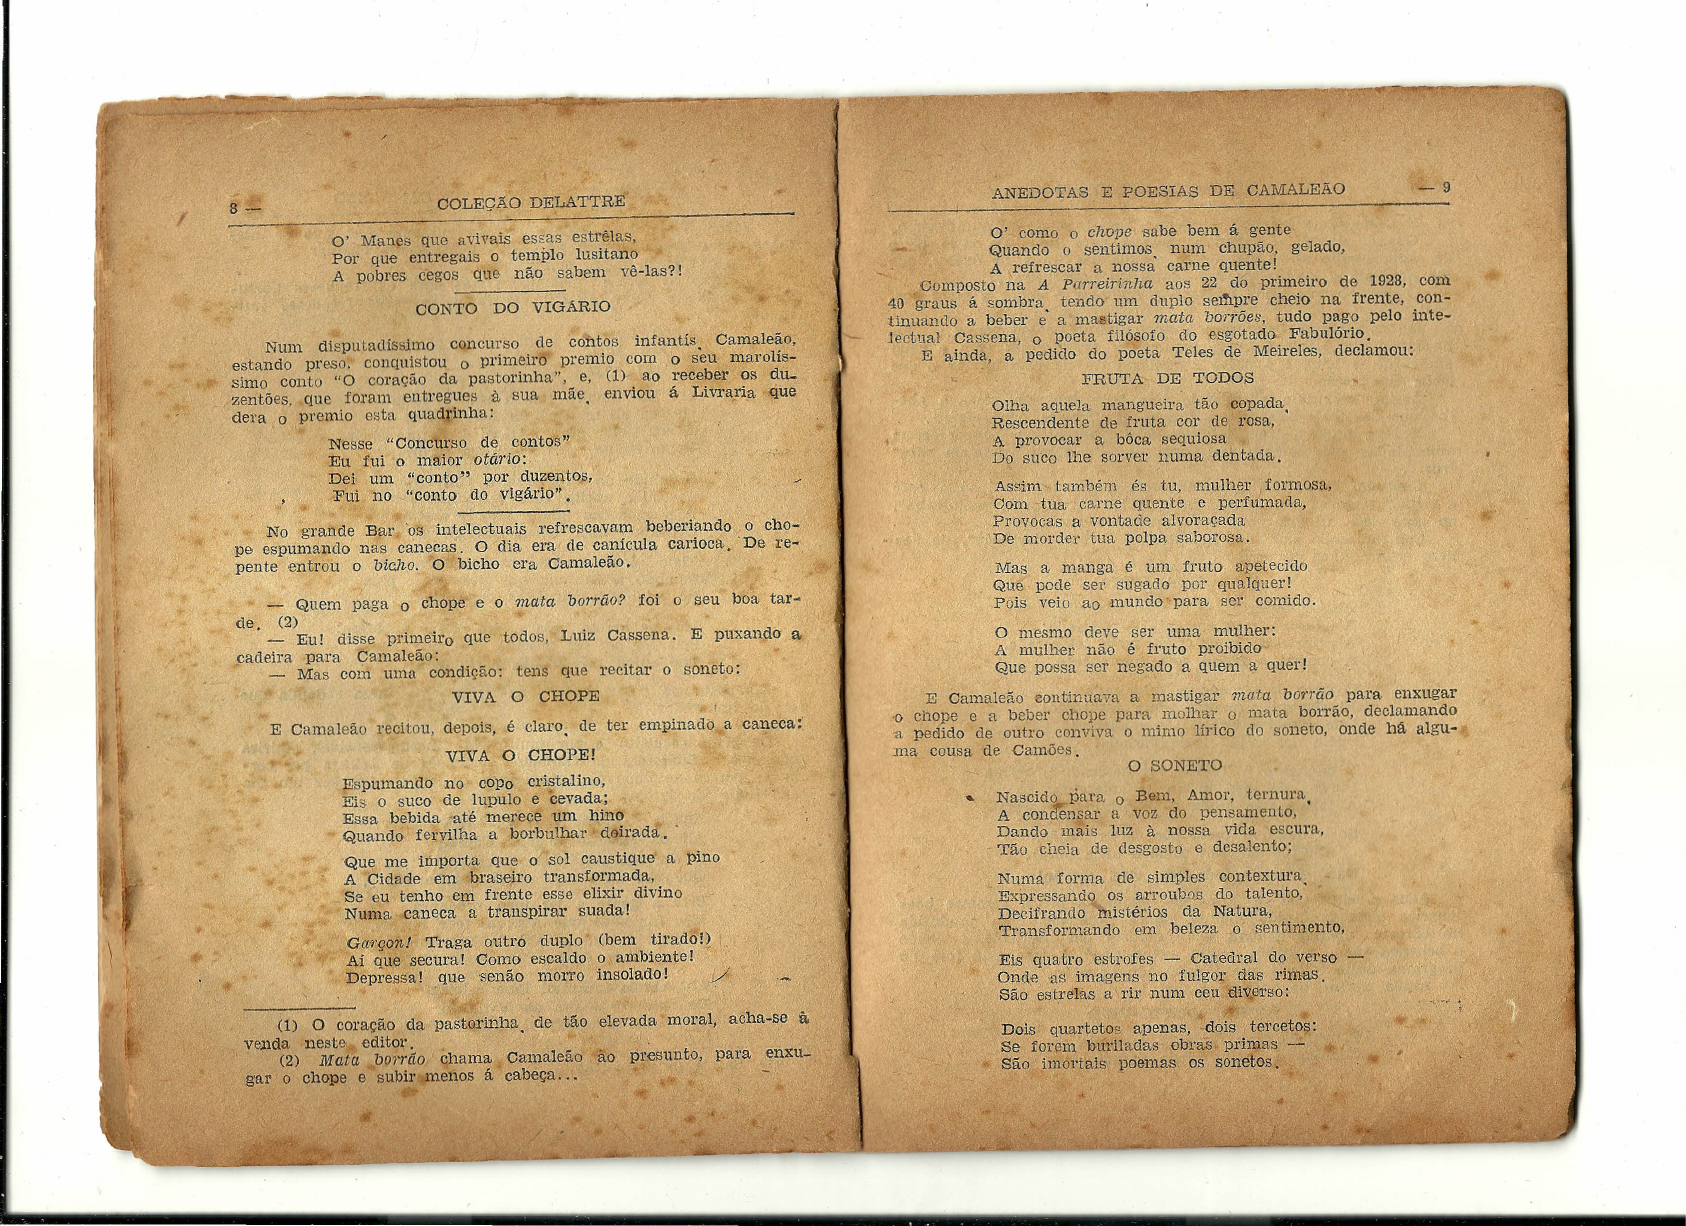 8 — COLEÇÃO DELATTRE
O' Manes que avivais essas estrêlas,
Por que entregais o templo lusitano
A pobres cegos que não sabem vê-las?!
CONTO DO VIGÁRIO
Num disputadíssimo concurso de contos infantís, Camaleão,
estando preso, conquistou o primeiro premio com o seu marolís-
simo conto “O coração da pastorinha”, e, (1) ao receber os du-
zentões, que foram entregues à sua mãe, enviou á Livraria que
dera o premio esta quadrinha:
Nesse “Concurso de contos”
Eu fui o maior otário:
Dei um “conto” por duzentos,
Fui no “conto do vigário”.
No grande Bar os intelectuais refrescavam beberiando o cho-
pe espumando nas canecas. O dia era de canícula carioca. De re-
pente entrou o bicho. O bicho era Camaleão.
— Quem paga o chope e o mata borrão? foi o seu boa tar-
de. (2)
— Eu! disse primeiro que todos, Luiz Cassena. E puxando a
cadeira para Camaleão:
— Mas com uma condição: tens que recitar o soneto:
VIVA O CHOPE
E Camaleão recitou, depois, é claro, de ter empinado a caneca:
VIVA O CHOPE!
Espumando no copo cristalino,
Eis o suco de lupulo e cevada;
Essa bebida até merece um hino
Quando fervilha a borbulhar doirada.
Que me importa que o sol caustique a pino
A Cidade em braseiro transformada,
Se eu tenho em frente esse elixir divino
Numa caneca a transpirar suada!
Garçon! Traga outro duplo (bem tirado!)
Aí que secura! Como escaldo o ambiente!
Depressa! que senão morro insolado!
(1) O coração da pastorinha, de tão elevada moral, acha-se à
venda neste editor.
(2) Mata borrão chama Camaleão ao presunto, para enxu-
gar o chope e subir menos á cabeça...
ANEDOTAS E POESIAS DE CAMALEÃO — 9
O' como o chope sabe bem á gente
Quando o sentimos, num chupão, gelado,
A refrescar a nossa carne quente!
Composto na A Parreirinha aos 22 do primeiro de 1928, com
40 graus á sombra, tendo um duplo sempre cheio na frente, con-
tinuando a beber e a mastigar mata borrões, tudo pago pelo inte-
lectual Cassena, o poeta filósofo do esgotado Fabulório.
E ainda, a pedido do poeta Teles de Meireles, declamou:
FRUTA DE TODOS
Olha aquela mangueira tão copada,
Rescendente de fruta cor de rosa,
A provocar a bôca sequiosa
Do suco lhe sorver numa dentada.
Assim também és tu, mulher formosa,
Com tua carne quente e perfumada,
Provocas a vontade alvoraçada
De morder tua polpa saborosa.
Mas a manga é um fruto apetecido
Que pode ser sugado por qualquer!
Pois veio ao mundo para ser comido.
O mesmo deve ser uma mulher:
A mulher não é fruto proibido
Que possa ser negado a quem a quer!
E Camaleão continuava a mastigar mata borrão para enxugar
o chope e a beber chope para molhar o mata borrão, declamando
a pedido de outro conviva o mimo lírico do soneto, onde há algu-
ma cousa de Camões.
O SONETO
Nascido para o Bem, Amor, ternura,
A condensar a voz do pensamento,
Dando mais luz à nossa vida escura,
Tão cheia de desgosto e desalento;
Numa forma de simples contextura,
Expressando os arroubos do talento,
Decifrando mistérios da Natura,
Transformando em beleza o sentimento,
Eis quatro estrofes — Catedral do verso —
Onde as imagens no fulgor das rimas.
São estrelas a rir num ceu diverso:
Dois quartetos apenas, dois tercetos:
Se forem buriladas obras primas —
São imortais poemas os sonetos.